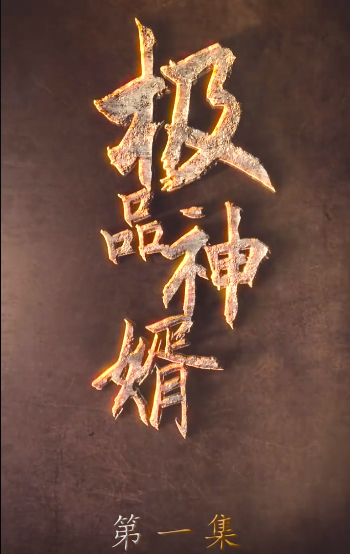 极品神婿
第一集